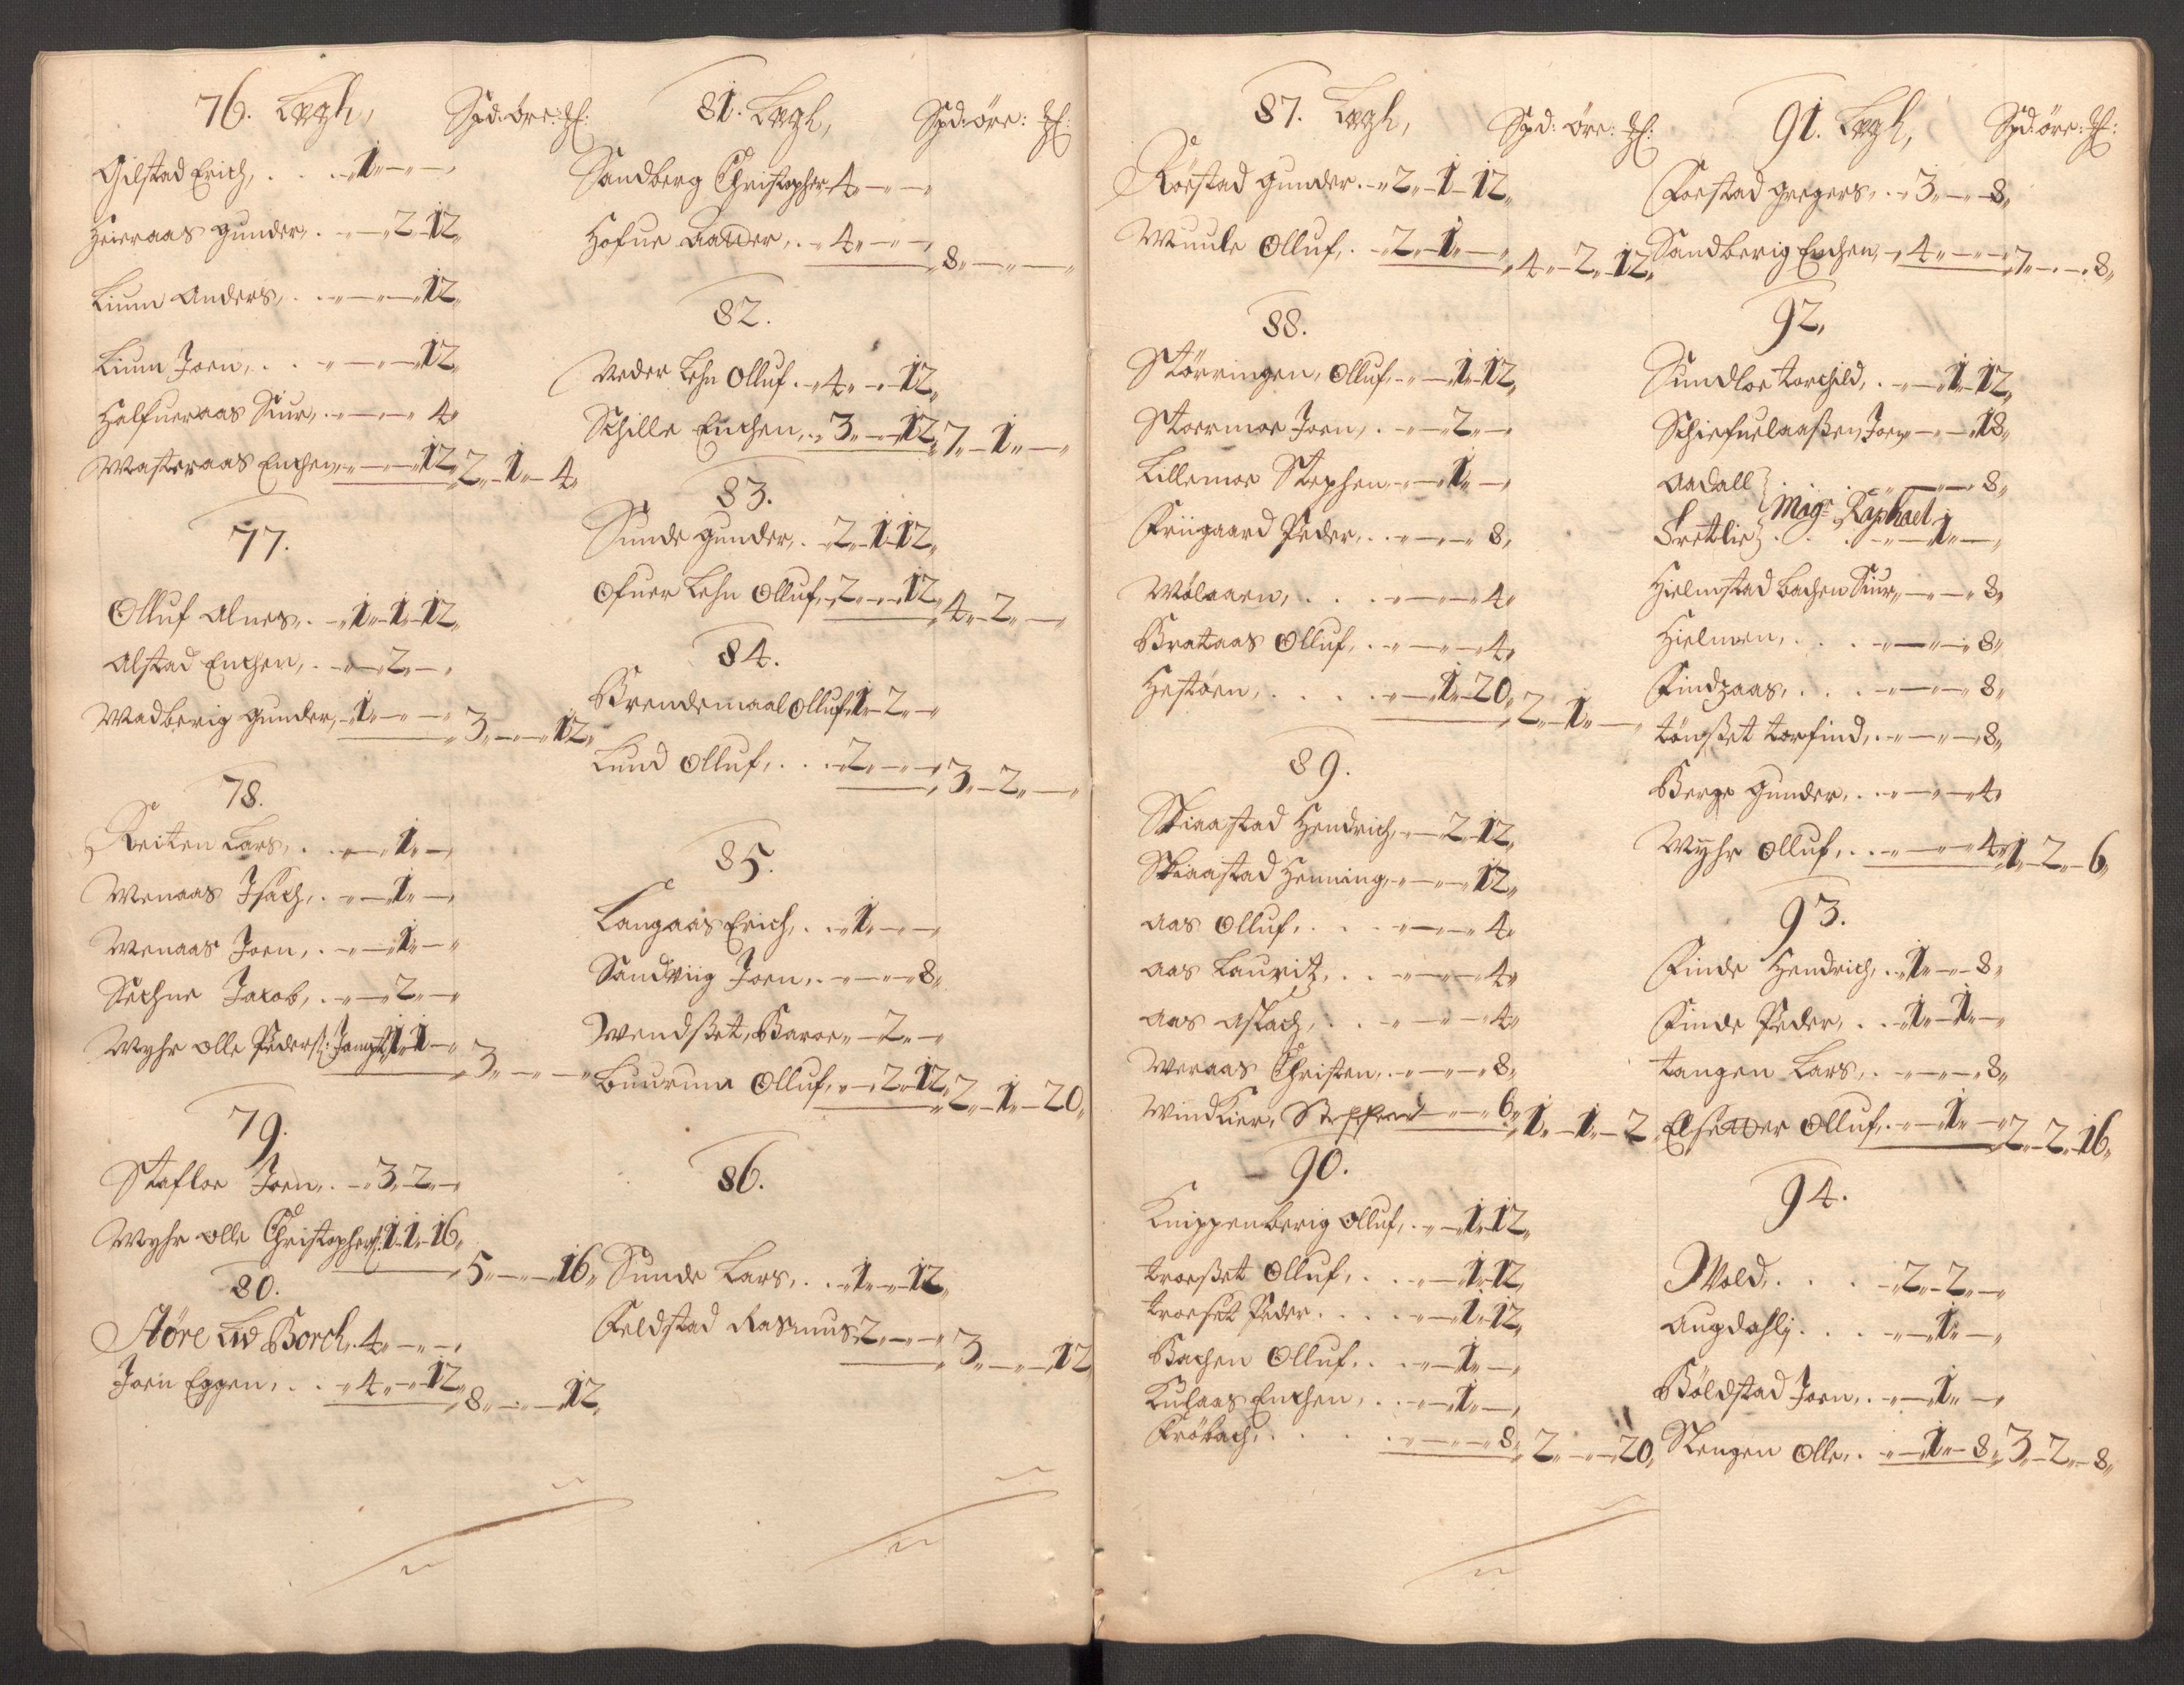 76. Lægh, Spd: öre: ℔:
Gilstad Erich, . . . 1 " — " —
Heieraas gunder, . " — 2 " 12 "
Lium Anders, . . " — " — 12 "
Lium Joen, . . " — " — 12 "
Halfueraas Siur, . " — " — 4 "
Wasteraas Enchen, " — " — 12 " 2 " 1 " 4 "
77.
Olluf Alnes, . 1 " 1 " 12 "
Alstad Enchen, . " — 2 " —
Wadberig gunder, 1 " — " — 3 " — " 12 "
78.
Reiten Lars, . . " — 1 " —
Wenaas Isach, . " — 1 " —
Wenaas Joen, . " — 1 " —
Sechne Jacob, . " — 2 " —
Myhr olle Peders: Jompt, 1 " 1 " — 3 " — " —
79.
Stafloe Joen, . 3 " 2 " —
Myhr olle Christophers: 1 " 1 " 16 " 5 " — " 16 "
80.
Störe Lid Borch, 4 " — " —
Joen Eggen, . . 4 " — 12 " 8 " — " 12 "
81. Lægh, Spd: öre: ℔:
Sandberg Christopher 4 " — " —
Hofue Aanner, . 4 " — " — 8 " — " —
82.
Neder Lehn Olluf . 4 " — 12 "
Schille Enchen, . 3 " — 12 " 7 " 1 " —
83.
Sunde gunder, . 2 " 1 " 12 "
Ofuer Lehn Olluf, 2 " — 12 " 4 " 2 " —
84.
Brendemaal Olluf 1 " 2 " —
Lund Olluf, . . 2 " — " — 3 " 2 " —
85.
Langaas Erich, . . 1 " — " —
Sandviig Joen, . " — " — 8 "
Wendsset, Baroe " — 2 " —
Buurun Olluf, " — 2 " 12 " 2 " 1 " 20 "
86.
Sunde Lars, . . 1 " — 12 "
Feldstad Rasmus 2 " — " — 3 " — " 12
87. Lægh, Spd: öre: ℔:
Röestad gunder . 2 " 1 " 12 "
Wuule Olluf, . 2 " 1 " — 4 " 2 " 12 "
88.
Störringen, Olluf, " — 1 " 12 "
Stoermoe Joen, . " — 2 " —
Lillemoe Stephen " — 1 " —
Friigaard Peder, . . " — " — 8 "
Wølaaen, . . . " — " — 4 "
Brataas Olluf, . " — " — 4 "
Hestøen, . . . . " — 1 " 20 " 2 " 1 " —
89.
Skiaastad Hendrich, " — 2 " 12 "
Skiaastad Henning, " — " — 12 "
Aas Olluf, . . . " — " — 4 "
Aas Lauritz, . . " — " — 4 "
Aas Aslach, . . " — " — 4 "
Weraas Christen, . " — " — 8 "
Windkier, Steffen " — " — 6 " 1 " 1 " 2 "
90.
Knippenberig Olluf, . " — 1 " 12 "
Troesset Olluf, . . " — 1 " 12 "
Troeset Peder . . . " — 1 " 12 "
Bachen Olluf, . . " — 1 " —
Kulaas Enchen, . . " — 1 " —
Fröbach, . . . . " — " — 8 " 2 " — " 20 "
91. Lægh, Spd: öre: ℔:
Foestad gregers, . 3 " — 8 "
Sandberig Enchen, 4 " — " — 7 " — " 8 "
92,
Sundloe Torchild, . " — 1 " 12 "
Schiefuelaassen, Joen " — " — 18 "
Aadall } . . . " — " — 8 "
Magr Raphael
Brettlie } . . . " — 1 " —
Hielmstad bachen Siur, " — " — 8 "
Hielmen, . . . " — " — 8 "
Findzaas, . . . " — " — 8 "
Tøngsset Torfind, . " — " — 8 "
Berge gunder, . . " — " — 4 "
Myhr Olluf, . . " — " — 4 " 1 " 2 " 6 "
93.
Finde Hendrich, . 1 " — 8 "
Finde Peder, . . 1 " 1 " —
Tangen Lars, . " — " — 8 "
Elsetter Olluf, . " — 1 " — 2 " 2 " 16 "
94.
Wold, . . . 2 " 2 " —
Augdahl, . . . " — 1 " —
Böldstad Joen, . " — 1 " —
Stengen Olle, . " — 1 " 8 " 3 " 2 " 8 "